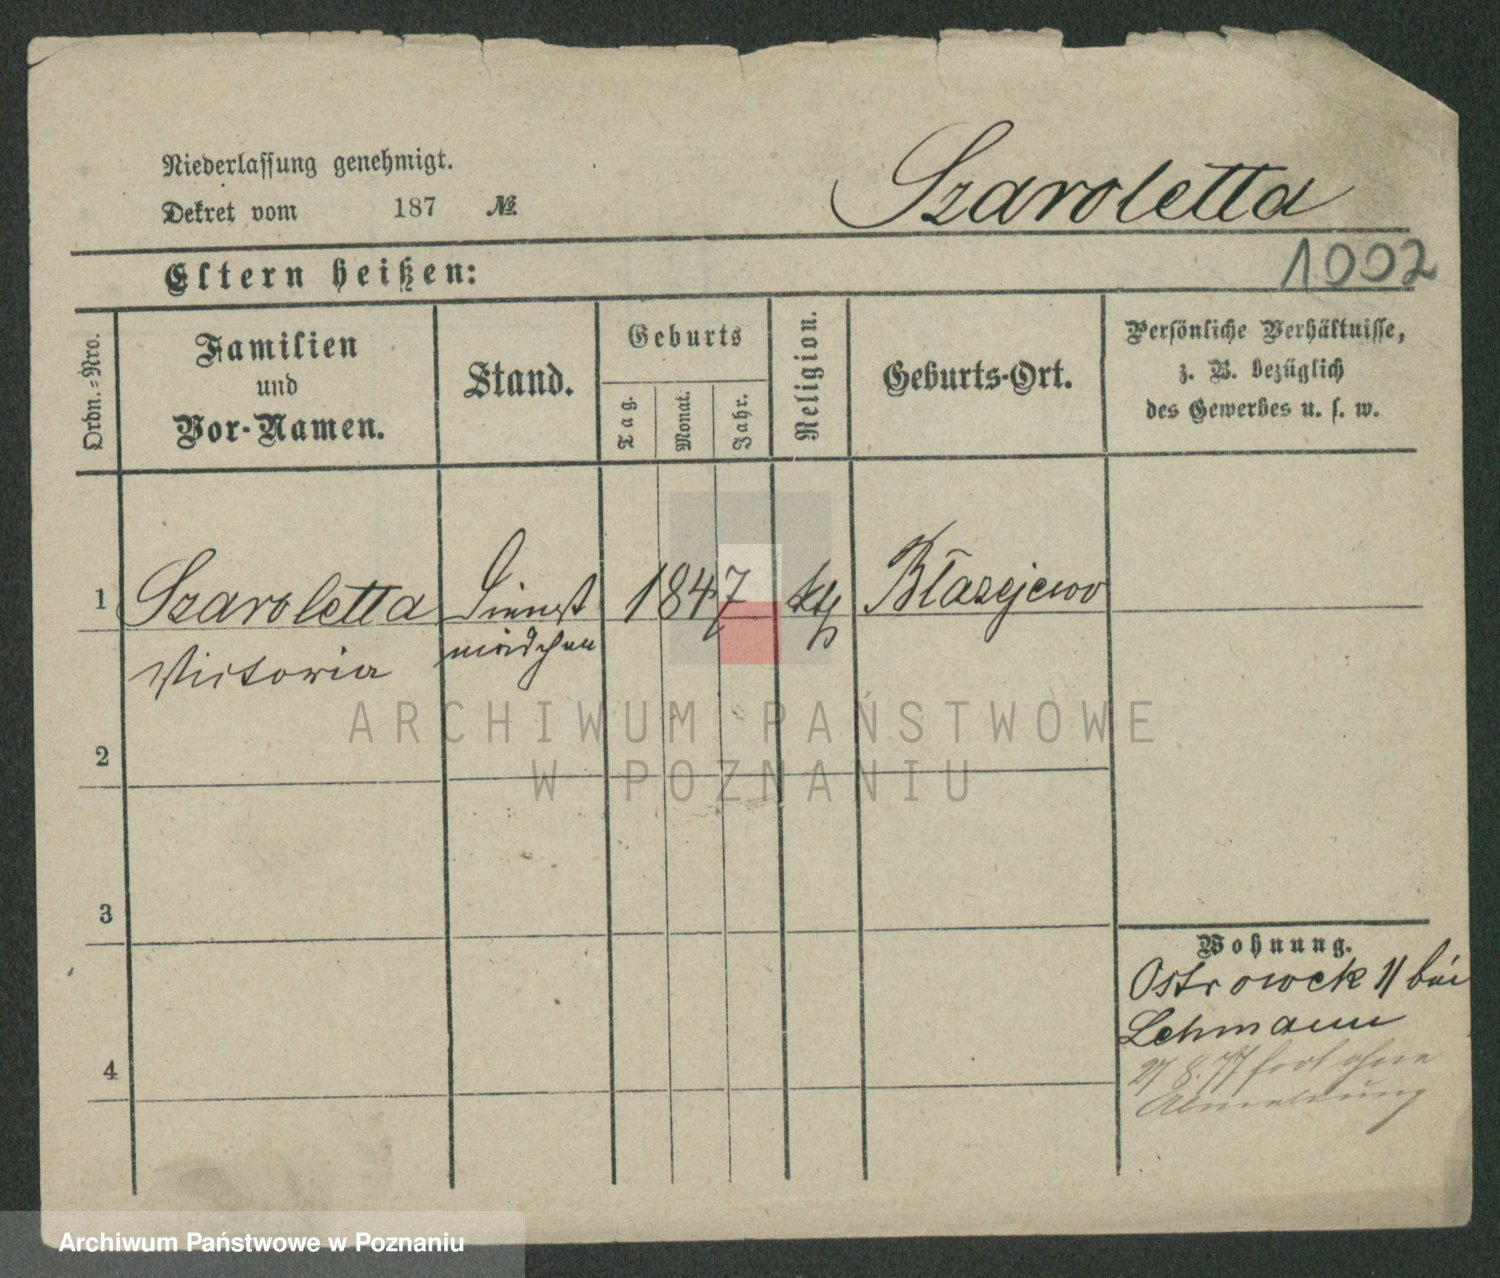 Niederlassung genehmigt.
Dekret vom 187 №
Szaroletta
1002
Eltern heißen:
Ordn.-Nro.
Familien
und
Vor-Namen.
Stand.
Geburts
Tag.
Monat.
Jahr.
Religion.
Geburts-Ort.
Persönliche Verhältnisse,
z. B. bezüglich
des Gewerbes u. s. w.
1 Szaroletta Dienst 1847 kth Błazejewo
Victoria mädchen
2
3
4
Wohnung.
Ostrowek 11 bei
Lehmann
27 8. 77 fort ohne
Abmeldung
ARCHIWUM PAŃSTWOWE
W POZNANIU
Archiwum Państwowe w Poznaniu